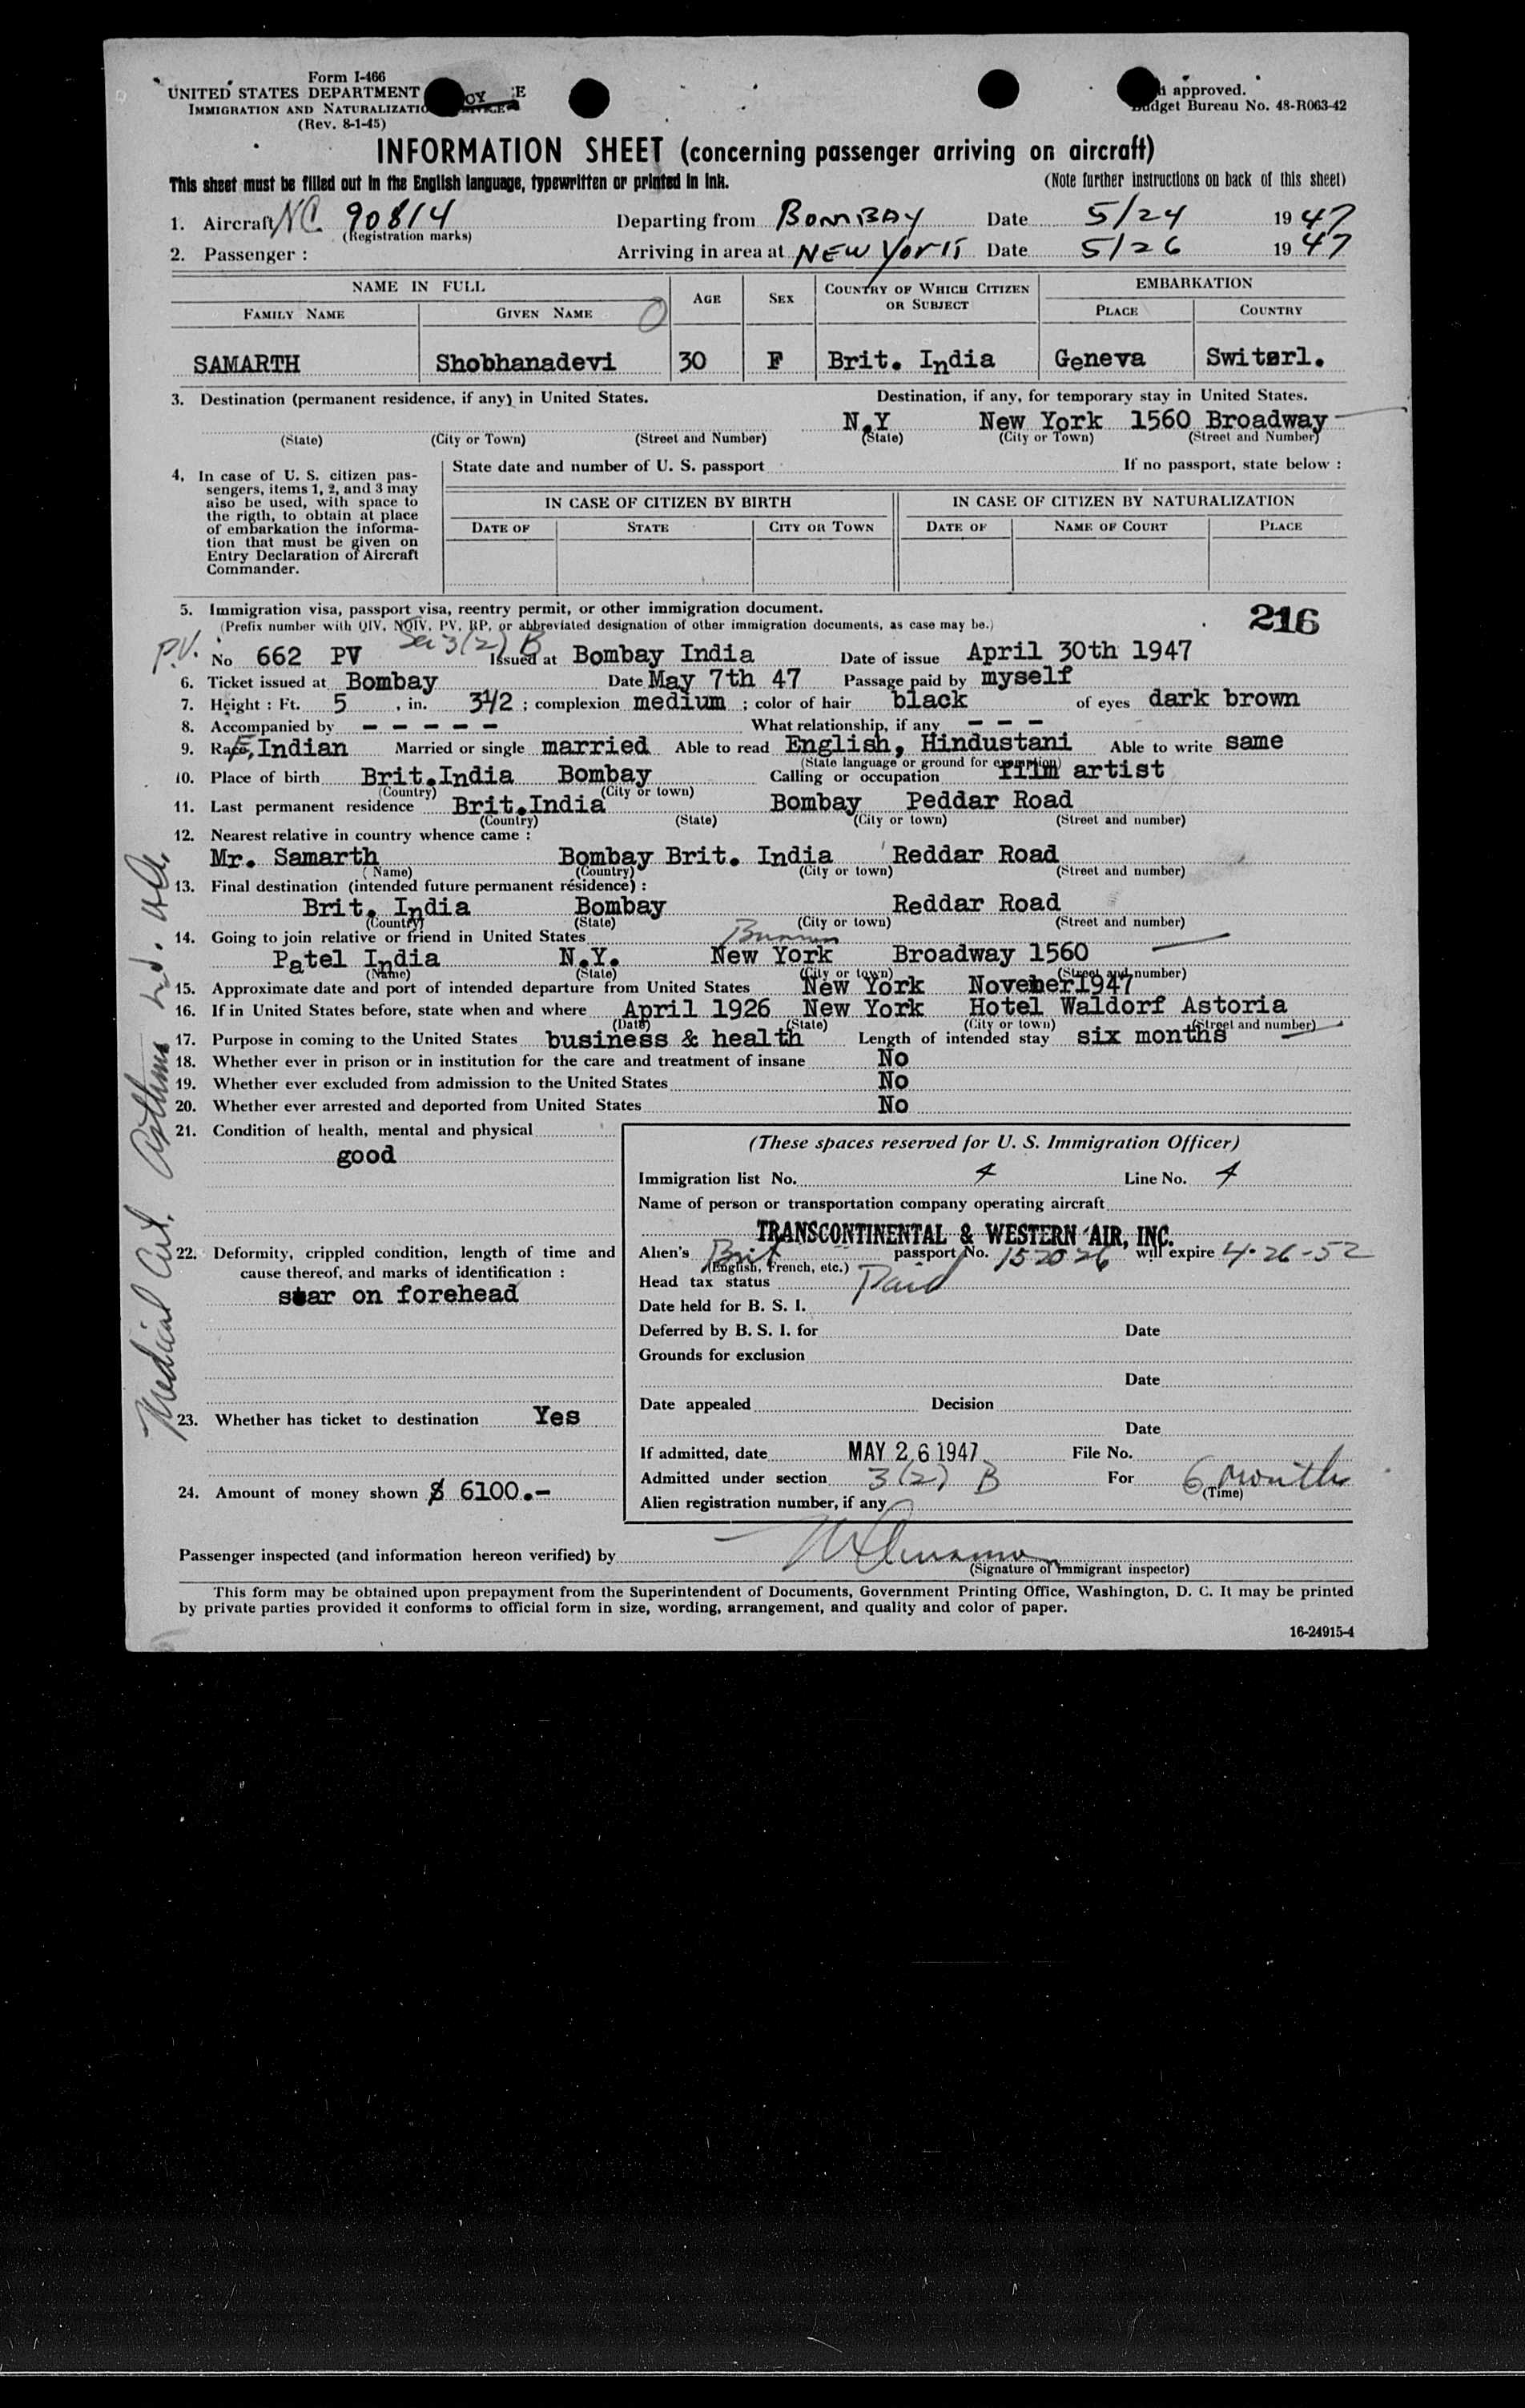 Form I-466
UNITED STATES DEPARTMENT
IMMIGRATION AND NATURALIZATIO
(Rev. 8-1-45)
approved.
Budget Bureau No. 48-R063-42
INFORMATION SHEET (concerning passenger arriving on aircraft)
This sheet must be filled out in the English language, typewritten or printed in ink. (Note further instructions on back of this sheet)
1. Aircraft NC 90814 Departing from BOMBAY Date 5/24 1947
(Registration marks)
2. Passenger : Arriving in area at NEW YORK Date 5/26 1947
NAME IN FULL AGE SEX COUNTRY OF WHICH CITIZEN OR SUBJECT EMBARKATION
FAMILY NAME GIVEN NAME PLACE COUNTRY
SAMARTH Shobhanadevi 30 F Brit. India Geneva Switørl.
3. Destination (permanent residence, if any) in United States. Destination, if any, for temporary stay in United States.
N.Y New York 1560 Broadway
(State) (City or Town) (Street and Number) (State) (City or Town) (Street and Number)
4. In case of U. S. citizen pas-
sengers, items 1, 2, and 3 may
also be used, with space to
the rigth, to obtain at place
of embarkation the informa-
tion that must be given on
Entry Declaration of Aircraft
Commander.
State date and number of U. S. passport If no passport, state below :
IN CASE OF CITIZEN BY BIRTH IN CASE OF CITIZEN BY NATURALIZATION
DATE OF STATE CITY OR TOWN DATE OF NAME OF COURT PLACE
5. Immigration visa, passport visa, reentry permit, or other immigration document.
(Prefix number with QIV, NQIV, PV, RP, or abbreviated designation of other immigration documents, as case may be.)
216
P.V. Sec 3(2) B
No 662 PV Issued at Bombay India Date of issue April 30th 1947
6. Ticket issued at Bombay Date May 7th 47 Passage paid by myself
7. Height : Ft. 5 , in. 31/2 ; complexion medium ; color of hair black of eyes dark brown
8. Accompanied by - - - - - What relationship, if any - - -
9. Race, Indian Married or single married Able to read English, Hindustani Able to write same
(State language or ground for exemption)
10. Place of birth Brit.India Bombay Calling or occupation film artist
(Country) (City or town)
11. Last permanent residence Brit.India Bombay Peddar Road
(Country) (State) (City or town) (Street and number)
12. Nearest relative in country whence came :
Mr. Samarth Bombay Brit. India Reddar Road
(Name) (Country) (City or town) (Street and number)
13. Final destination (intended future permanent résidence) :
Brit. India Bombay Reddar Road
(Country) (State) (City or town) (Street and number)
14. Going to join relative or friend in United States
Patel India N.Y. New York Broadway 1560
(Name) (State) (City or town) (Street and number)
15. Approximate date and port of intended departure from United States New York November1947
16. If in United States before, state when and where April 1926 New York Hotel Waldorf Astoria
(Date) (State) (City or town) (Street and number)
17. Purpose in coming to the United States business & health Length of intended stay six months
18. Whether ever in prison or in institution for the care and treatment of insane No
19. Whether ever excluded from admission to the United States No
20. Whether ever arrested and deported from United States No
21. Condition of health, mental and physical
good
22. Deformity, crippled condition, length of time and
cause thereof, and marks of identification :
star on forehead
23. Whether has ticket to destination Yes
24. Amount of money shown $ 6100.-
Medical Cert. Asthma
(These spaces reserved for U. S. Immigration Officer)
Immigration list No. 4 Line No. 4
Name of person or transportation company operating aircraft
TRANSCONTINENTAL & WESTERN AIR, INC.
Alien's Brit passport No. 152026 will expire 4-26-52
(English, French, etc.)
Head tax status Paid
Date held for B. S. I.
Deferred by B. S. I. for Date
Grounds for exclusion
Date
Date appealed Decision
Date
If admitted, date MAY 26 1947 File No.
Admitted under section 3(2) B For 6 months
(Time)
Alien registration number, if any
Passenger inspected (and information hereon verified) by
(Signature of immigrant inspector)
This form may be obtained upon prepayment from the Superintendent of Documents, Government Printing Office, Washington, D. C. It may be printed
by private parties provided it conforms to official form in size, wording, arrangement, and quality and color of paper.
16-24915-4